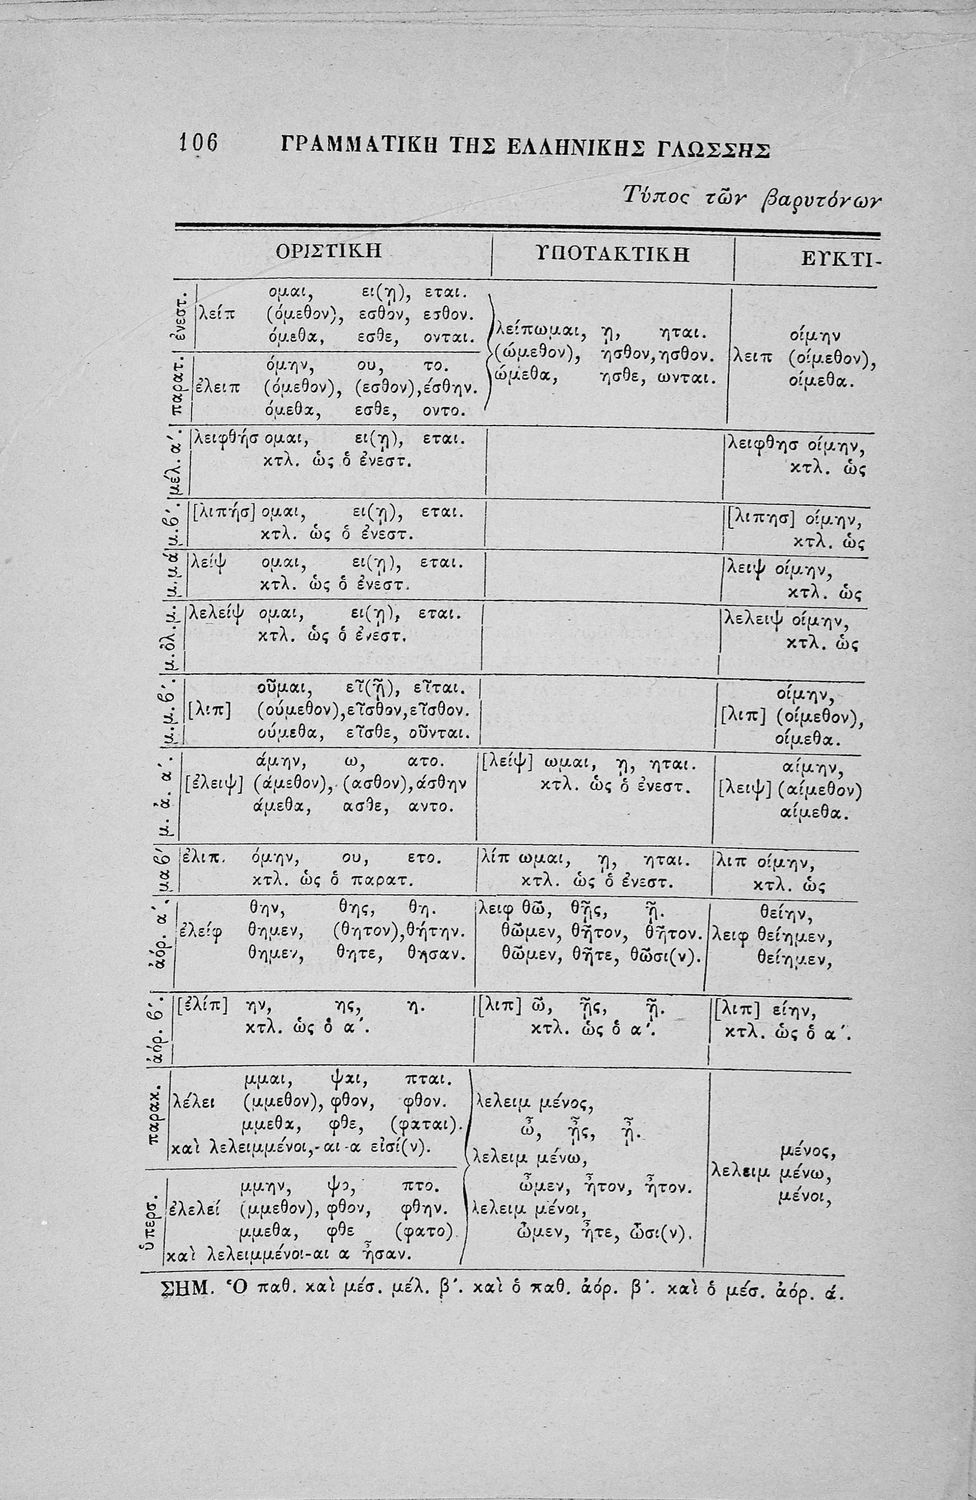 106 ΓΡΑΜΜΑΤΙΚΗ ΤΗΣ ΕΛΛΗΝΙΚΗΣ ΓΛΩΣΣΗΣ
Τύπος τῶν βαρυτόνων
ΟΡΙΣΤΙΚΗ ΥΠΟΤΑΚΤΙΚΗ ΕΥΚΤΙ-
ἐνεστ.
ομαι, ει(ῃ), εται.
λείπ (όμεθον), εσθον, εσθον.
όμεθα, εσθε, ονται.
παρατ.
όμην, ου, το.
ἐλειπ (όμεθον), (εσθον), έσθην.
όμεθα, εσθε, οντο.
λείπωμαι, ῃ, ηται.
(ώμεθον), ησθον, ησθον.
ώμεθα, ησθε, ωνται.
οίμην
λειπ (οίμεθον),
οίμεθα.
μέλ. α΄.
λειφθήσ ομαι, ει(ῃ), εται.
κτλ. ὡς ὁ ἐνεστ.
λειφθησ οίμην,
κτλ. ὡς
μ. β΄.
[λιπήσ] ομαι, ει(ῃ), εται.
κτλ. ὡς ὁ ἐνεστ.
[λιπησ] οίμην,
κτλ. ὡς
μ. μ ά
λείψ ομαι, ει(ῃ), εται.
κτλ. ὡς ὁ ἐνεστ.
λειψ οίμην,
κτλ. ὡς
μ. ὀλ. μ.
λελείψ ομαι, ει(ῃ), εται.
κτλ. ὡς ὁ ἐνεστ.
λελειψ οίμην,
κτλ. ὡς
μ. μ. β΄.
οῦμαι, εῖ(ῇ), εῖται.
[λιπ] (ούμεθον), εῖσθον, εῖσθον.
ούμεθα, εῖσθε, οῦνται.
οίμην,
[λιπ] (οίμεθον),
οίμεθα.
μ. ἀ. α΄.
άμην, ω, ατο.
[ἐλειψ] (άμεθον), (ασθον), άσθην
άμεθα, ασθε, αντο.
[λείψ] ωμαι, ῃ, ηται.
κτλ. ὡς ὁ ἐνεστ.
αίμην,
[λειψ] (αίμεθον)
αίμεθα.
μα β΄
ἐλιπ. όμην, ου, ετο.
κτλ. ὡς ὁ παρατ.
λίπ ωμαι, ῃ, ηται.
κτλ. ὡς ὁ ἐνεστ.
λιπ οίμην,
κτλ. ὡς
ἀόρ. α΄.
θην, θης, θη.
ἐλείφ θημεν, (θητον), θήτην.
θημεν, θητε, θησαν.
λειφ θῶ, θῇς, ῇ.
θῶμεν, θῆτον, θῆτον.
θῶμεν, θῆτε, θῶσι(ν).
θείην,
λειφ θείημεν,
θείημεν,
ἀόρ. β΄.
[ἐλίπ] ην, ης, η.
κτλ. ὡς ὁ α΄.
[λιπ] ῶ, ῇς, ῇ.
κτλ. ὡς ὁ α΄.
[λιπ] είην,
κτλ. ὡς ὁ α΄.
παρακ.
μμαι, ψαι, πται.
λέλει (μμεθον), φθον, φθον.
μμεθα, φθε, (φαται).
καὶ λελειμμένοι,-αι-α εἰσί(ν).
ὑπερσ.
μμην, ψο, πτο.
ἐλελεί (μμεθον), φθον, φθην.
μμεθα, φθε (φατο)
καὶ λελειμμένοι-αι α ἦσαν.
λελειμ μένος,
ὦ, ᾖς, ᾖ.
λελειμ μένω,
ὦμεν, ἦτον, ἦτον.
λελειμ μένοι,
ὦμεν, ἦτε, ὦσι(ν).
μένος,
λελειμ μένω,
μένοι,
ΣΗΜ. Ὁ παθ. καὶ μέσ. μέλ. β΄. καὶ ὁ παθ. ἀόρ. β΄. καὶ ὁ μέσ. ἀόρ. ά.